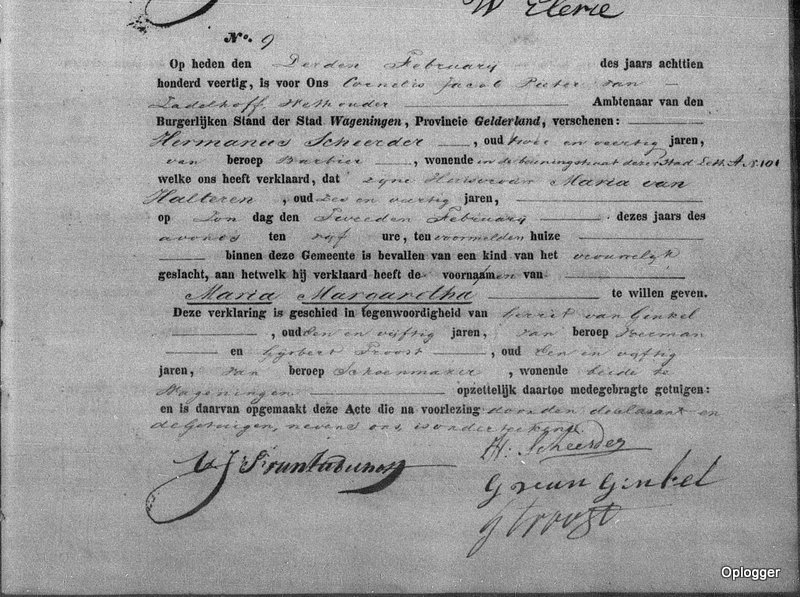 W Elerie
No. 9
Op heden den Derden February des jaars achttien
honderd veertig, is voor Ons Cornelis Jacob Pieter van
Zadelhoff, Wethouder Ambtenaar van den
Burgerlijken Stand der Stad Wageningen, Provincie Gelderland, verschenen:
Hermanus Scheerder, oud twee en veertig jaren,
van beroep Barbier, wonende in de deser Stad Lett. A. N. 101
welke ons heeft verklaard, dat zijne Huisvrouw Maria van
Halteren, oud Zes en veertig jaren,
op Zon dag den Tweeden February dezes jaars des
avonds ten vijf ure, ten voormelden huize
binnen deze Gemeente is bevallen van een kind van het vrouwelijk
geslacht, aan hetwelk hij verklaard heeft de voornaamen van
Maria Margaretha te willen geven.
Deze verklaring is geschied in tegenwoordigheid van Gerrit van Ginkel
, oud een en vijftig jaren, van beroep Veerman
en Gijsbert Troost, oud een en vijftig
jaren, van beroep Schoenmaker, wonende beide te
Wageningen opzettelijk daartoe medegebragte getuigen:
en is daarvan opgemaakt deze Acte die na voorlezing door den declarant en
de Getuigen, nevens ons, is onderteekend.
H. Scheerder
G van Ginkel
G Troost
Oplogger